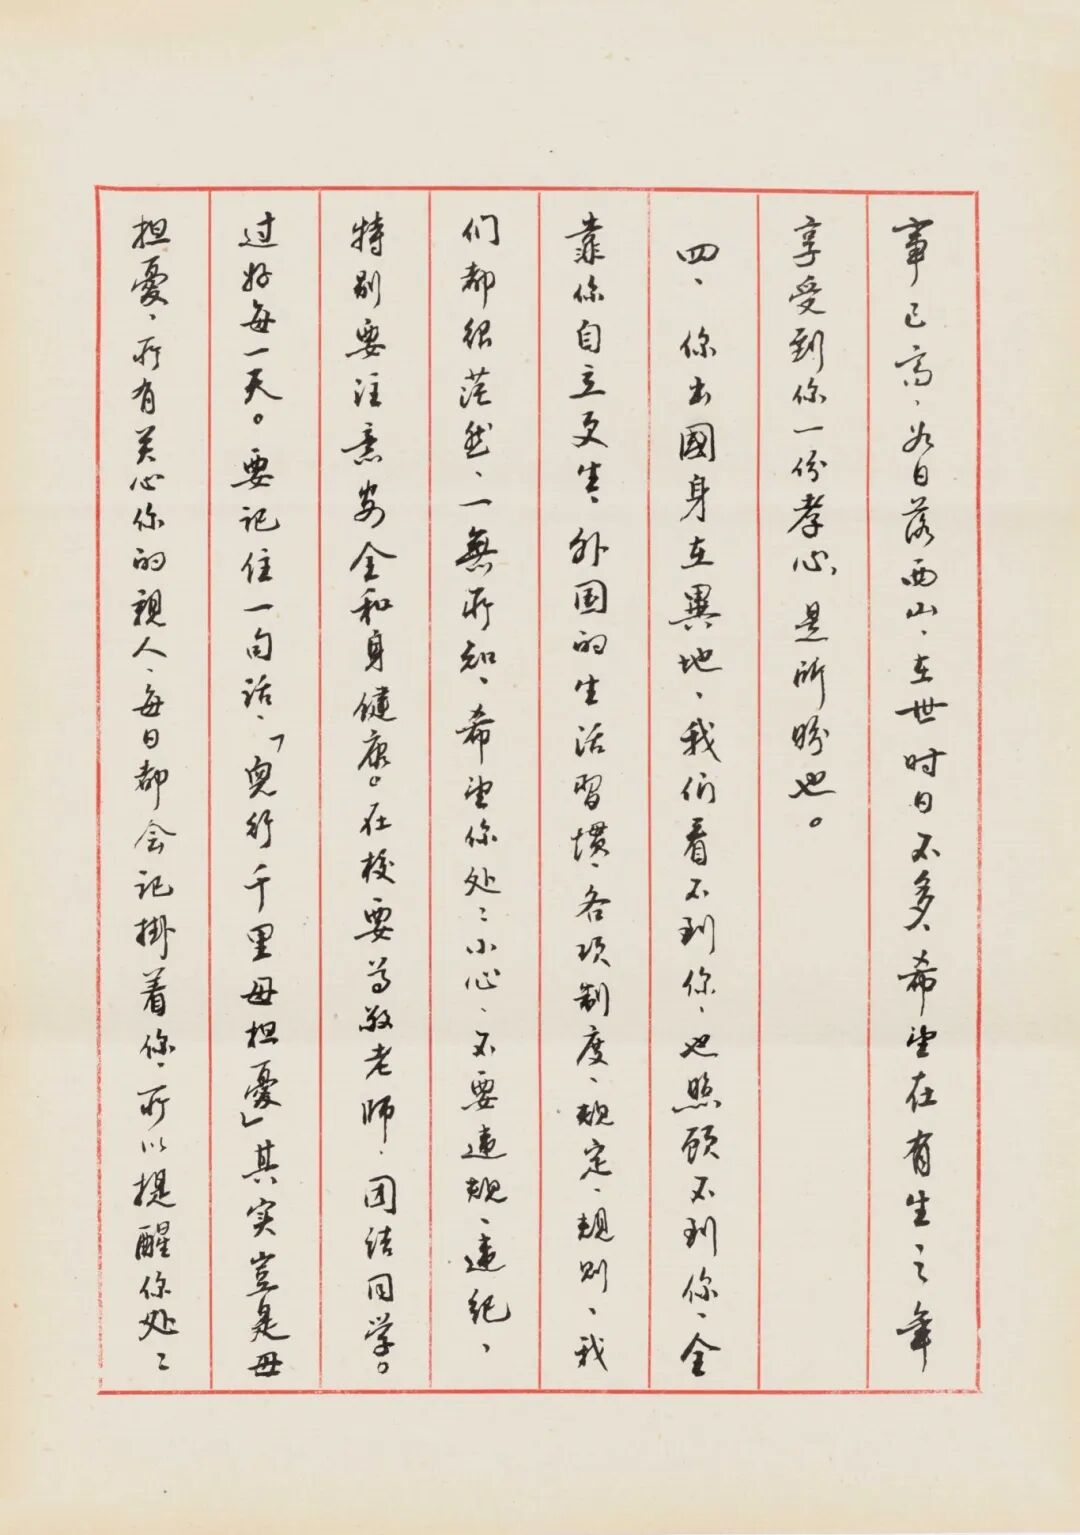 事已高、如日落西山、在世时日不多、希望在有生之年
享受到你一份孝心、是所盼也。
四、你出國身在異地、我们看不到你、也照顾不到你、全
靠你自立更生、外国的生活習惯、各项制度、规定、规则、我
们都很茫然、一無所知、希望你处〻小心、不要違规、違纪、
特别要注意安全和身健康。在校要尊敬老师、团结同学。
过好每一天。要记住一句话、「兒行千里母担憂」其实豈是母
担憂、所有关心你的親人、每日都会记掛着你、所以提醒你处〻